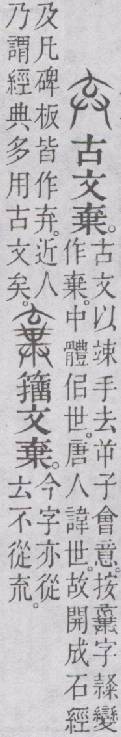 弃古文棄。
古文以竦手去屰子會意。按字隸變
作棄。中體佀世。唐人諱世。故開成石經
及凡碑板皆作弃。近人
乃謂經典多用古文矣。
籒文棄。
今字亦從
𠫓不從㐬。